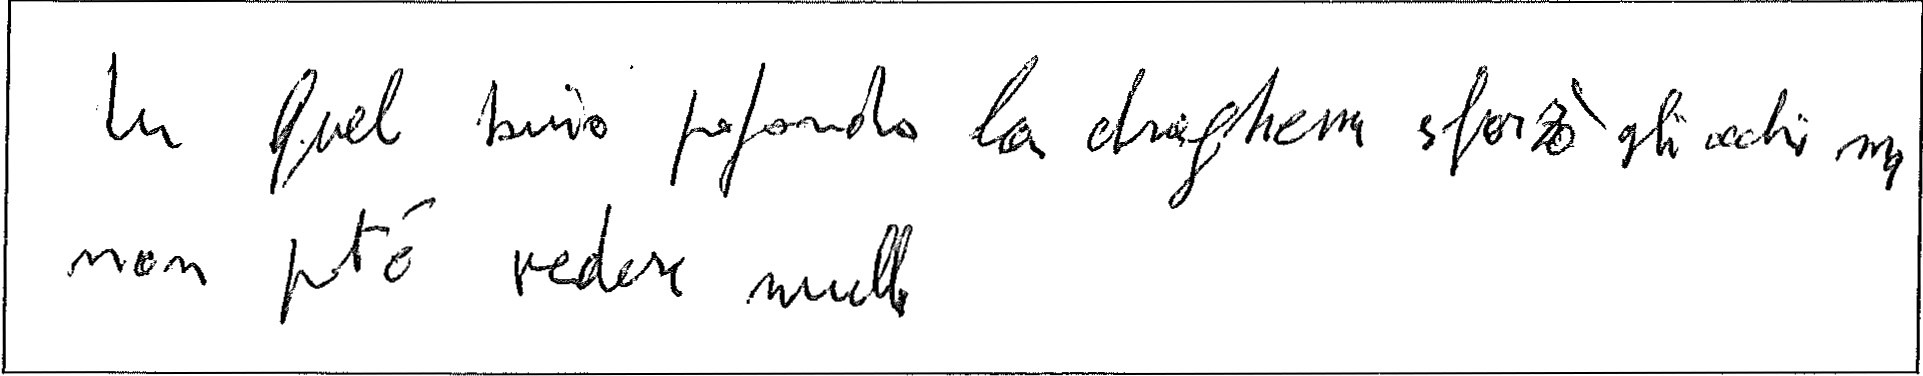 In quel buio pofondo la draghessa sforzò gli occhi ma
non pté vedere nulla